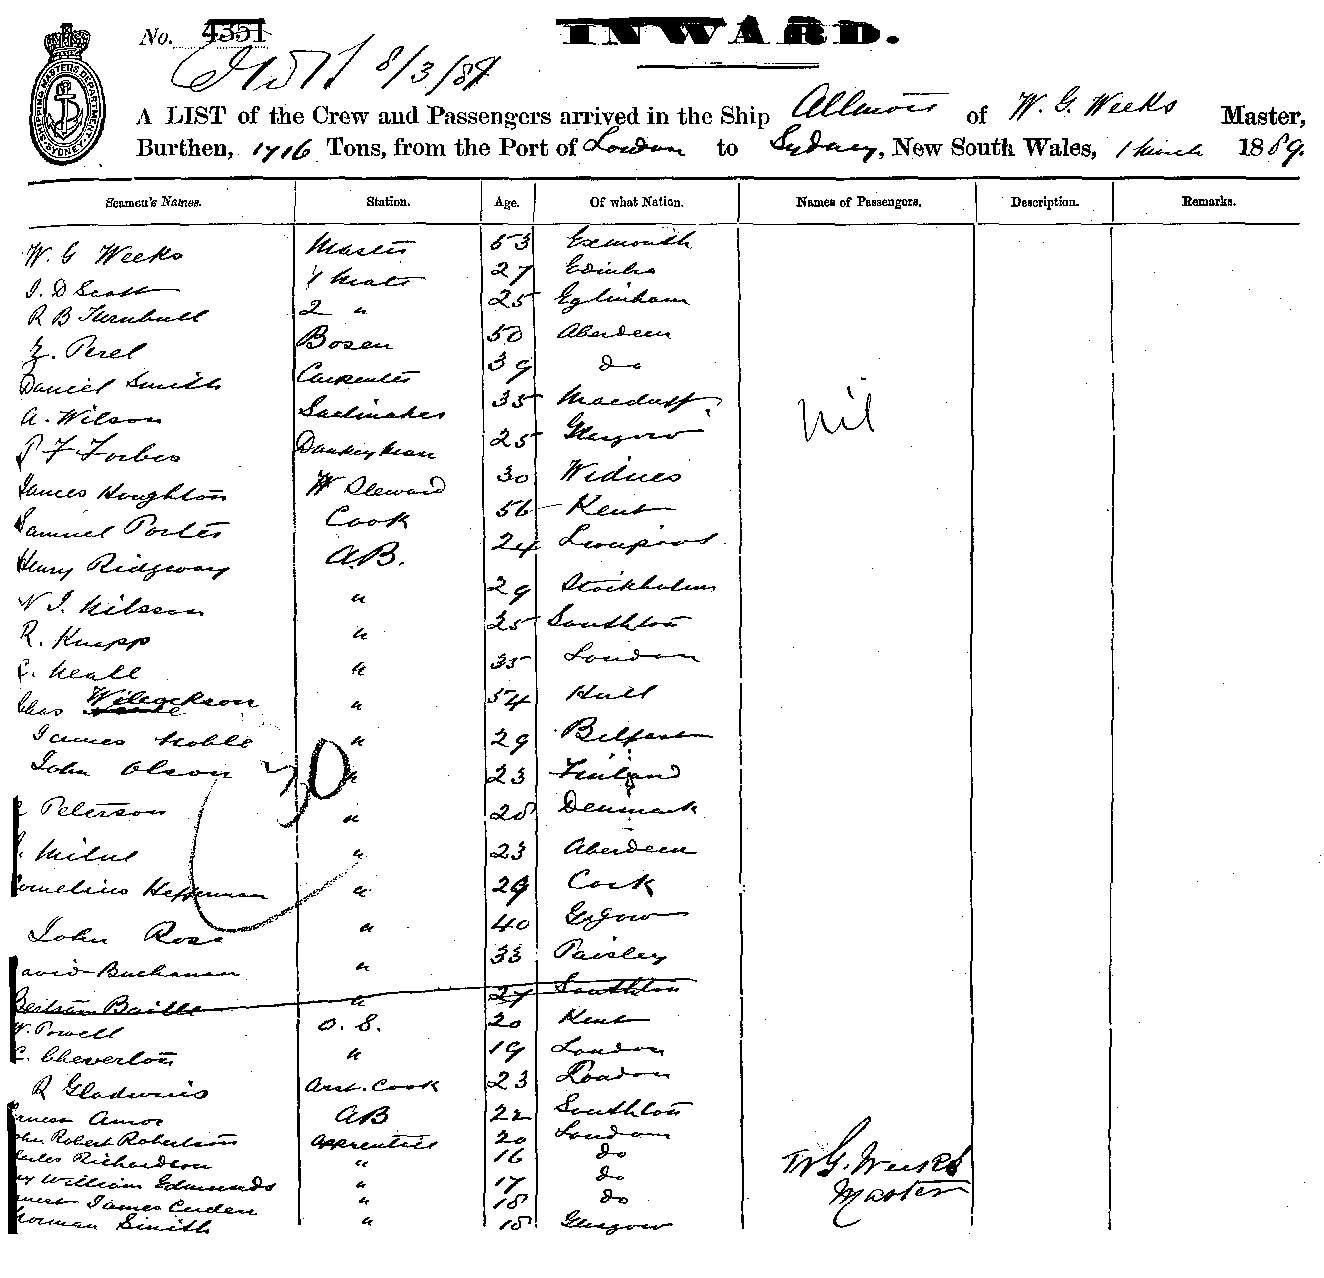 No. 4351 INWARD.
8/3/89
SHIPPING MASTERS DEPARTMENT SYDNEY
A LIST of the Crew and Passengers arrived in the Ship of W. G. Weeks Master,
Burthen, 1716 Tons, from the Port of London to Sydney, New South Wales, 1 March 1889.
Seamen's Names. Station. Age. Of what Nation. Names of Passengers. Description. Remarks.
W. G Weeks Master 53 Exmouth
J. D Scott 1 Mate 27 Edinbro
R B Turnbull 2 " 25 Eglinham
Perel Bosen 50 Aberdeen
Daniel Smith Carpenter 39 do
A. Wilson Sailmaker 35 Macduff
P F Forbes Donkeyman 25 Glasgow
Nil
James Houghton Steward 30 Widnes
Samuel Porter Cook 56 Kent
Henry Ridgway A.B. 24 Liverpool
N J. Nilsson " 29 Stockholm
R. Knapp " 25 Southton
C. Neall " 35 London
Chas Wilcockson " 54 Hull
James Noble " 29 Belfast
John Olson " 23 Finland
30
Peterson " 28 Denmark
Milne " 23 Aberdeen
Cornelius Heffernan " 29 Cork
John Rose " 40 Glasgow
avid Buchanan " 33 Paisley
Bertram Baille " 27 Southton
W. Powell O. S. 20 Kent
C. Cheverton " 19 London
R Gladwins Asst. Cook 23 London
rnest Amos AB 22 Southton
ohn Robert Robertson Apprentice 20 London
harles Richardson " 16 do
ry William Edmunds " 17 do
rnest James Curden " 18 do
Norman Smith " 18 Glasgow
W G. Weeks
Master